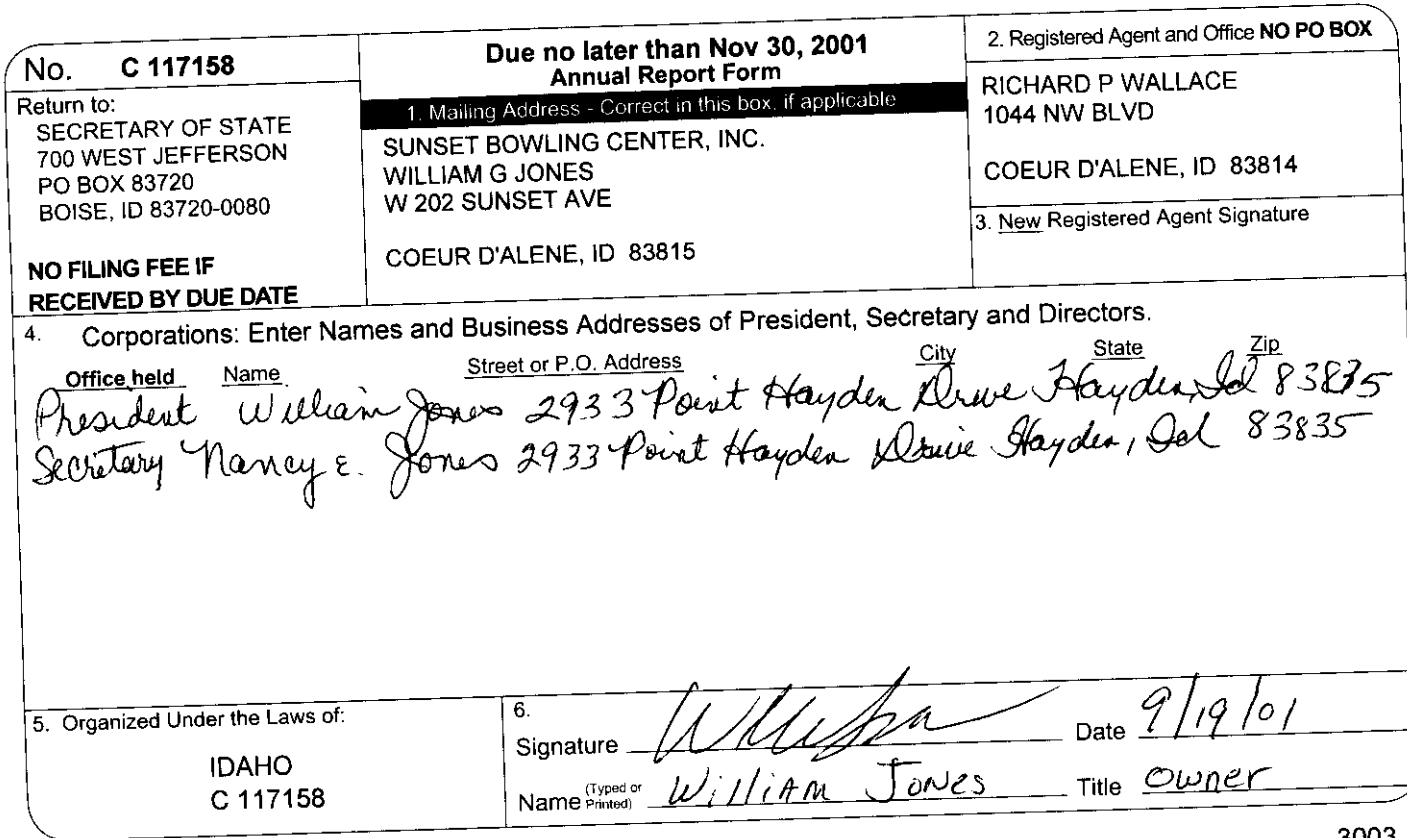 No. C 117158
Return to:
SECRETARY OF STATE
700 WEST JEFFERSON
PO BOX 83720
BOISE, ID 83720-0080
NO FILING FEE IF
RECEIVED BY DUE DATE
Due no later than Nov 30, 2001
Annual Report Form
1. Mailing Address - Correct in this box, if applicable
SUNSET BOWLING CENTER, INC.
WILLIAM G JONES
W 202 SUNSET AVE
COEUR D'ALENE, ID 83815
2. Registered Agent and Office NO PO BOX
RICHARD P WALLACE
1044 NW BLVD
COEUR D'ALENE, ID 83814
3. New Registered Agent Signature
4. Corporations: Enter Names and Business Addresses of President, Secretary and Directors.
Office held Name Street or P.O. Address City State Zip
President William Jones 2933 Point Hayden Drive Hayden, Id 83835
Secretary Nancy E. Jones 2933 Point Hayden Drive Hayden, Id 83835
5. Organized Under the Laws of:
IDAHO
C 117158
6.
Signature Date 9/19/01
Name (Typed or Printed) William Jones Title Owner
3003